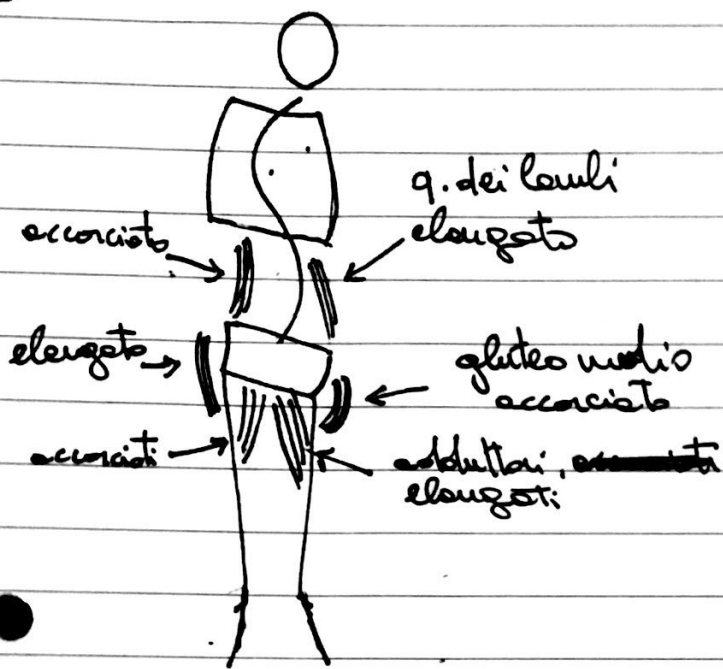 q. dei lombi
elongato
accorciato
elongato
gluteo medio
accorciato
accorciati
adduttori,
elongati